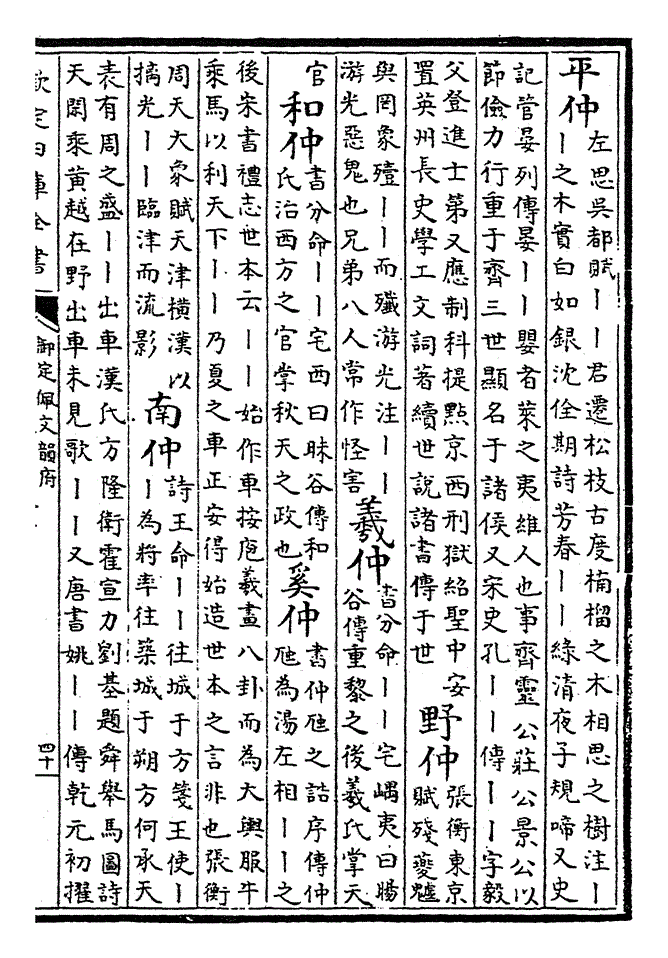 平仲左思吳都賦丨丨君遷松枝古度楠榴之木相思之樹注丨
丨之木實白如銀沈佺期詩芳春丨丨綠清夜子規啼又史
記管晏列傳晏丨丨嬰者萊之夷維人也事齊靈公莊公景公以
節儉力行重于齊三世顯名于諸侯又宋史孔丨丨傳丨丨字毅
父登進士第又應制科提點京西刑獄紹聖中安
置英州長史學工文詞著續世說諸書傳于世
野仲張衡東京
賦殘夔魖
與罔象殪丨丨而殲游光注丨丨
游光惡鬼也兄弟八人常作怪害
羲仲書分命丨丨宅嵎夷曰暘
谷傳重黎之後羲氏掌天
官
和仲書分命丨丨宅西曰昧谷傳和
氏治西方之官掌秋天之政也
奚仲書仲虺之誥序傳仲
虺為湯左相丨丨之
後宋書禮志世本云丨丨始作車按庖羲畫八卦而為大輿服牛
乘馬以利天下丨丨乃夏之車正安得始造世本之言非也張衡
周天大象賦天津橫漢以
摛光丨丨臨津而流影
南仲詩王命丨丨往城于方箋王使丨
丨為將率往築城于朔方何承天
表有周之盛丨丨出車漢氏方隆衛霍宣力劉基題舜舉馬圖詩
天閑乘黃越在野出車未見歌丨丨又唐書姚丨丨傳乾元初擢
欽定四庫全書
御定佩文韻府
四十